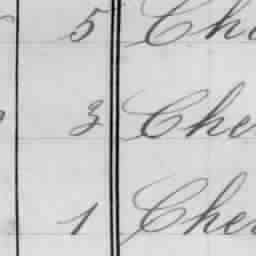 5 Che
3 Che
1 Cher